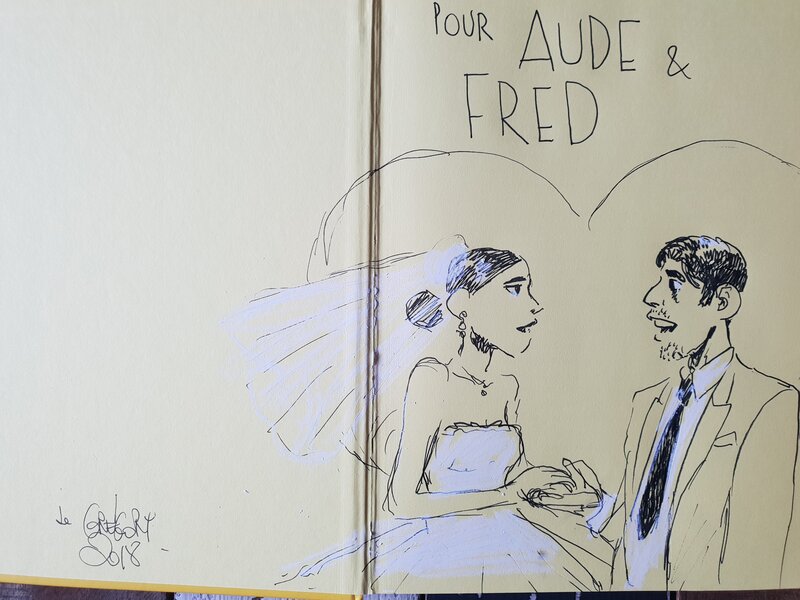 POUR AUDE &
FRED
GREGORY
2018